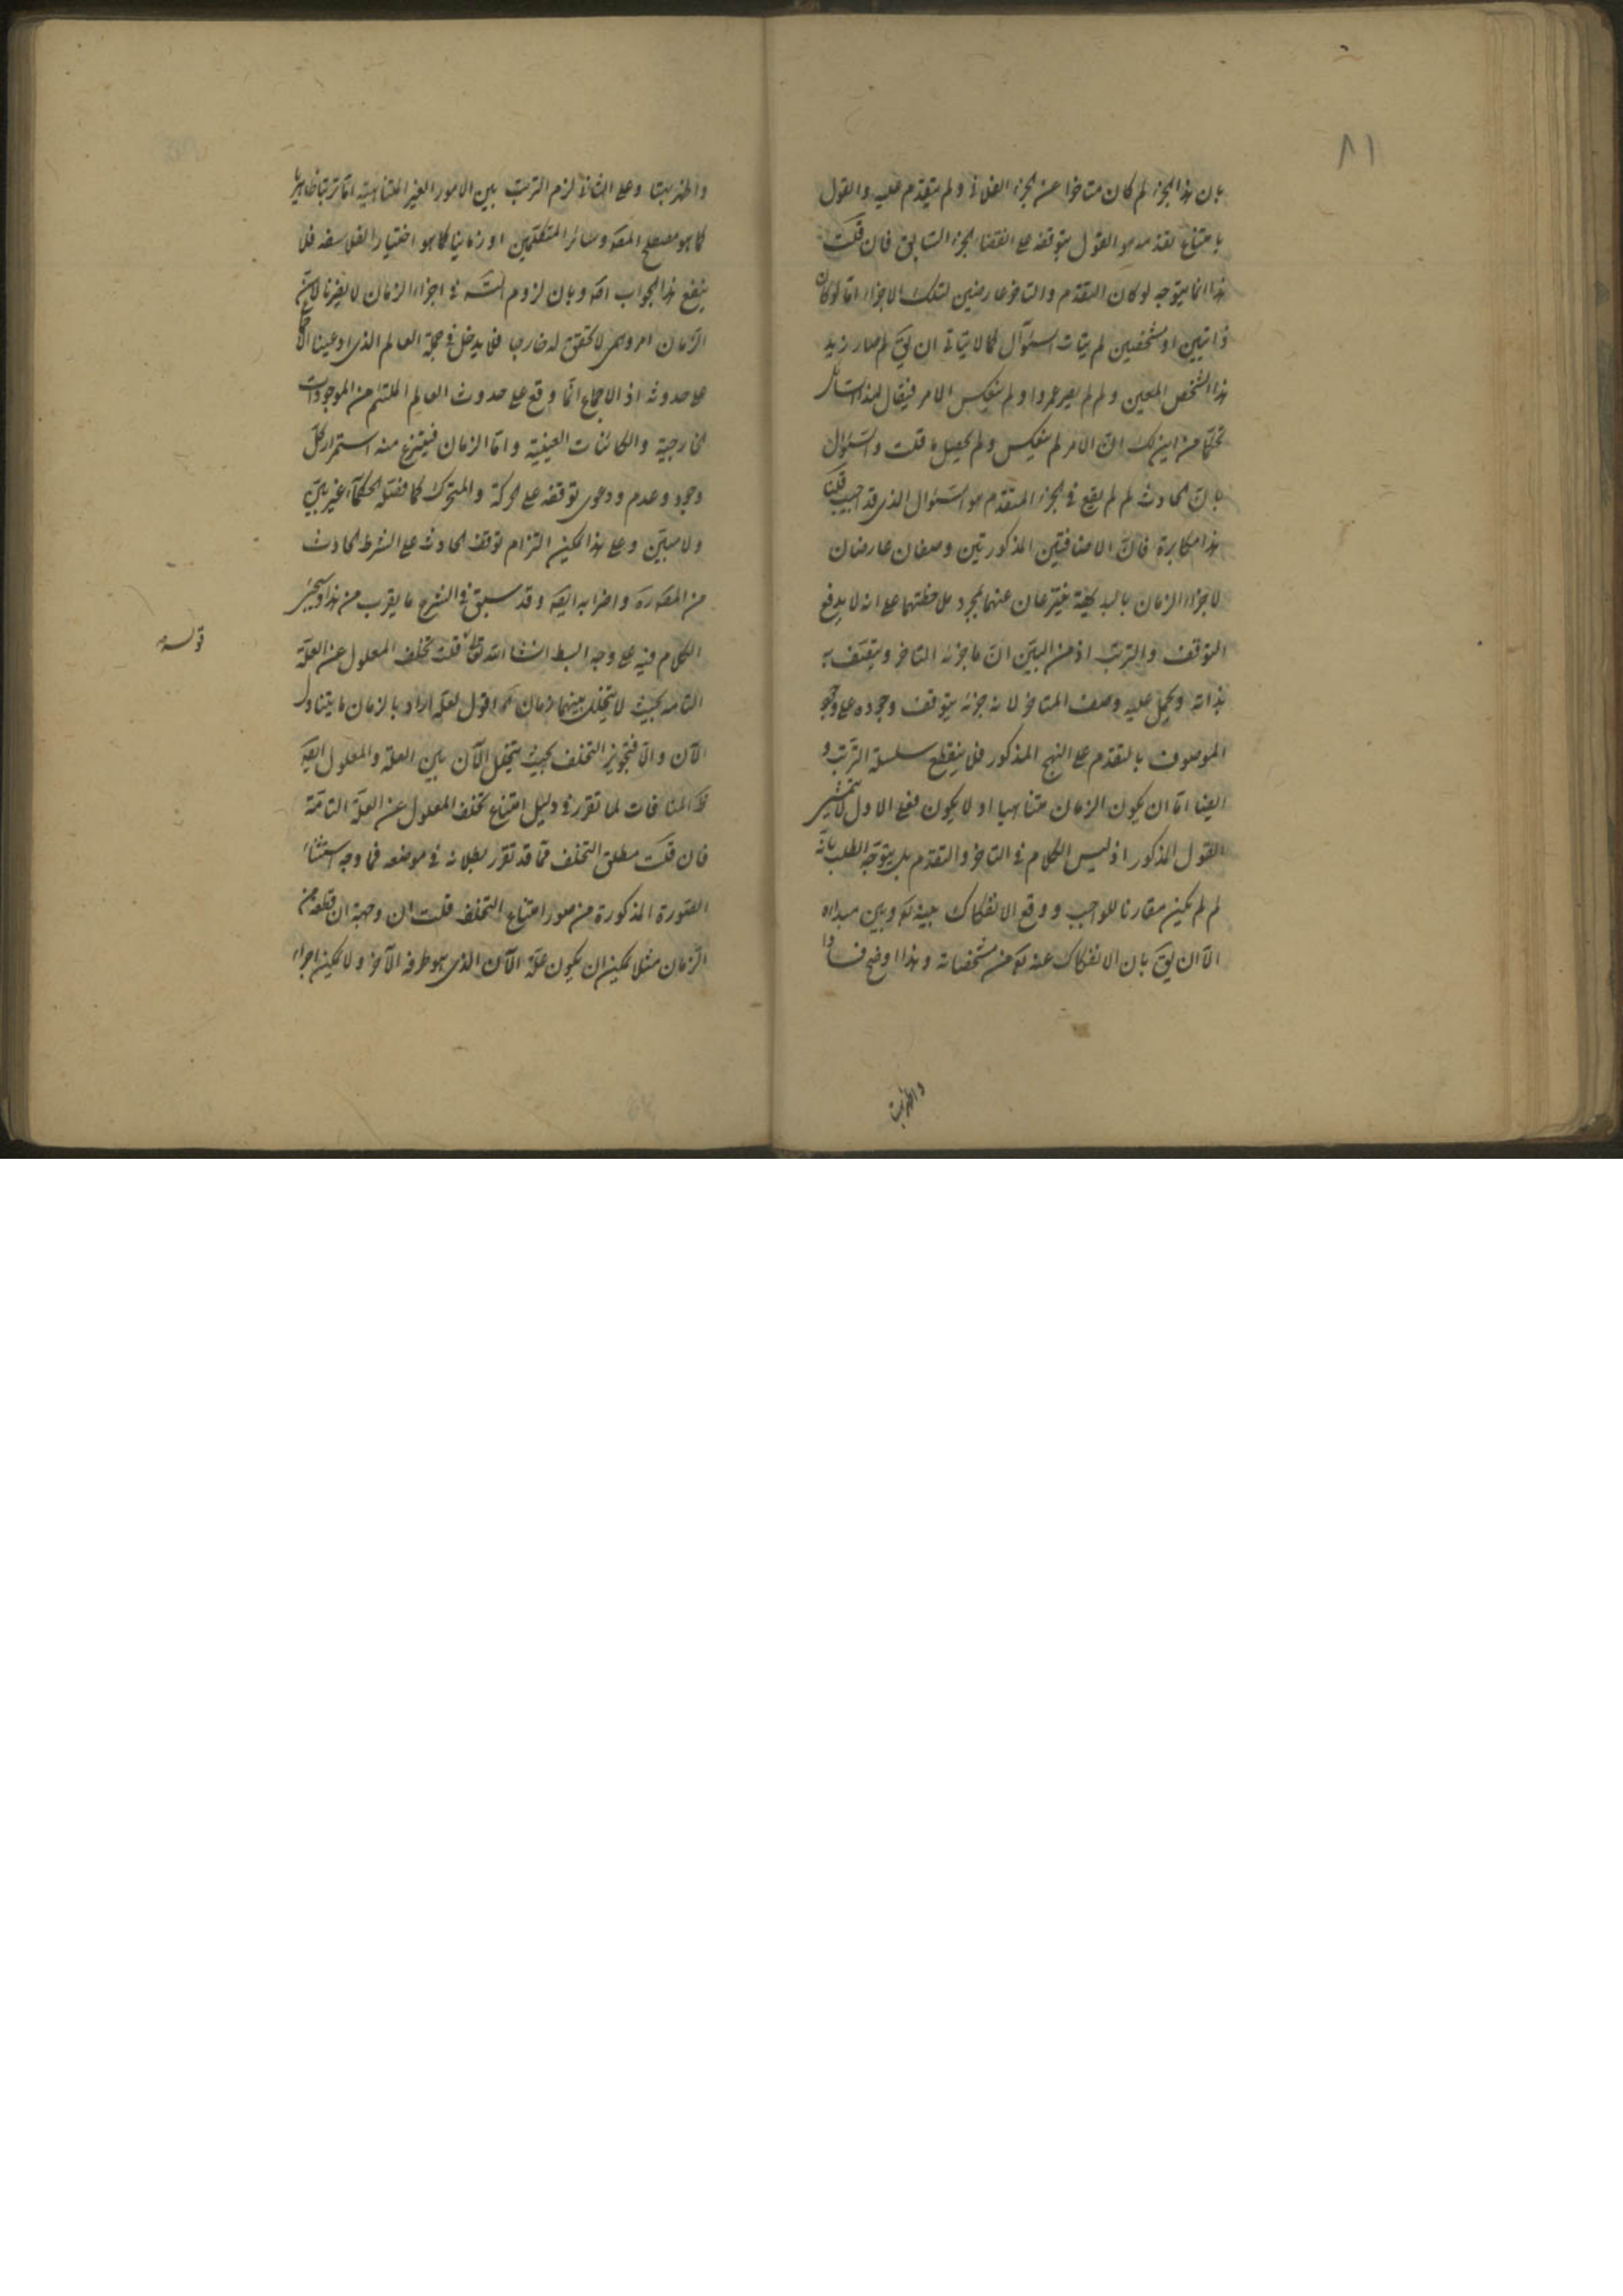 ٨١
بان هذا الجزء لم كان متاخرا عن الجزء الفلانى ولم يتقدم عليه والقول
بامتناع تقدمه هو القول بتوقفه على انقضاء الجزء السابق فان قلت
هذا انما يتوجه لو كان التقدم والتاخر عارضين لتلك الاجزاء اما لو كان
ذاتيين او مشخصين لم يتات السؤال كما لا يتاتى ان يق لم صار زيد
هذا الشخص المعين ولم لم يصر عمروا ولم ينعكس الامر فيقال لهذا السائل
من اين لك ان الامر لم ينعكس ولم يحصل ما قلت والسؤال
بان الحادث لم لم يقع فى الجزء المتقدم هو السؤال الذى قد اجيب قلنا
هذا مكابرة فان الاضافتين المذكورتين وصفان عارضان
لاجزاء الزمان بالبديهة ينتزعان عنهما بمجرد ملاحظتهما على انه لا يدفع
التوقف والترتب اذ من البين ان ما جزئه التاخر ويتصف به
بذاته ويحمل عليه وصف المتاخر لانه جزئه يتوقف وجوده على وجود
الموصوف بالتقدم على النهج المذكور فلا ينقطع سلسلة الترتب و
ايضا اما ان يكون الزمان متناهيا او لا يكون فعلى الاول لا يتمشى
القول المذكور اذ ليس الكلام فى التاخر والتقدم بل يتوجه الطلب بانه
لم لم يكن مقارنا للواجب ووقع الانفكاك بينه تع وبين مبداه
الا ان يق بان الانفكاك عنه تع من مشخصاته وهذا اوضح فسادا
واظهر بيتا وعلى الثانى لزم الترتب بين الامور الغير المتناهية اما ترتبا ظاهريا
كما هو مصطلح المص وسائر المتكلمين او زمانيا كما هو اختيار الفلاسفة فلا
ينفع هذا الجواب اصلا وبان لزوم فى اجزاء الزمان لا يضرنا لان
الزمان امر وهمى لا تحقق له خارجا فلا يدخل فى جملة العالم الذى ادعينا
على حدوثه اذ الاجماع انما وقع على حدوث العالم الملتئم من الموجودات
الخارجية والكائنات العينية واما الزمان فينتزع منه استمرار كل
وجود وعدم ودعوى توقفه على الحركة والمتحرك كما فصله الحكماء غير بين
ولا مبين وعلى هذا يمكن التزام توقف الحادث على الشرط الحادث
من المص ره واضرابه ايضا وقد سبق فى الشرح ما يقرب من هذا وسيجئ
الكلام فيه على وجه البسط انشاء الله تعالى قلت تخلف المعلول عن العلة
التامة بحيث لا يتخلل بينهما زمان اقول لعله اراد بالزمان ما يتناول
الآن والا فتجويز التخلف بحيث يتخلل الآن بين العلة والمعلول ايضا
المنافات لما تقرر فى دليل امتناع تخلف المعلول عن العلة التامة
فان قلت مطلق التخلف مما قد تقرر بطلانه فى موضعه فما وجه استثناء
الصورة المذكورة من صور امتناع التخلف قلت ان وجهه ان قطعة من
الزمان مثلا يمكن ان يكون علة الآن الذى هو طرفه الآخر ولا يمكن اجراء
قوله
واظهر بيتا